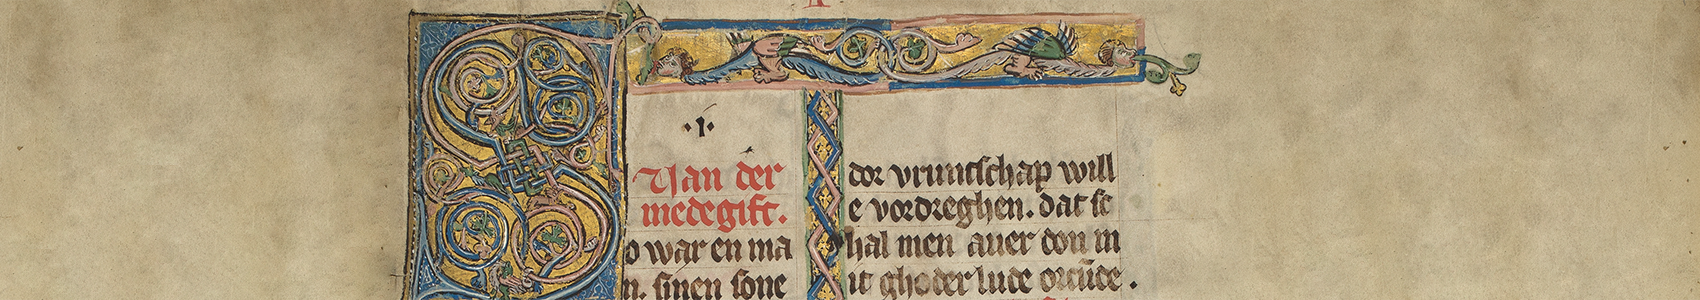 ·1·
Van der
medegift.
o war en ma
n. sinen sone
dor vruntschap will
e vordreghen. dat sc
hal men auer don m
it ghoder lude orcūde.